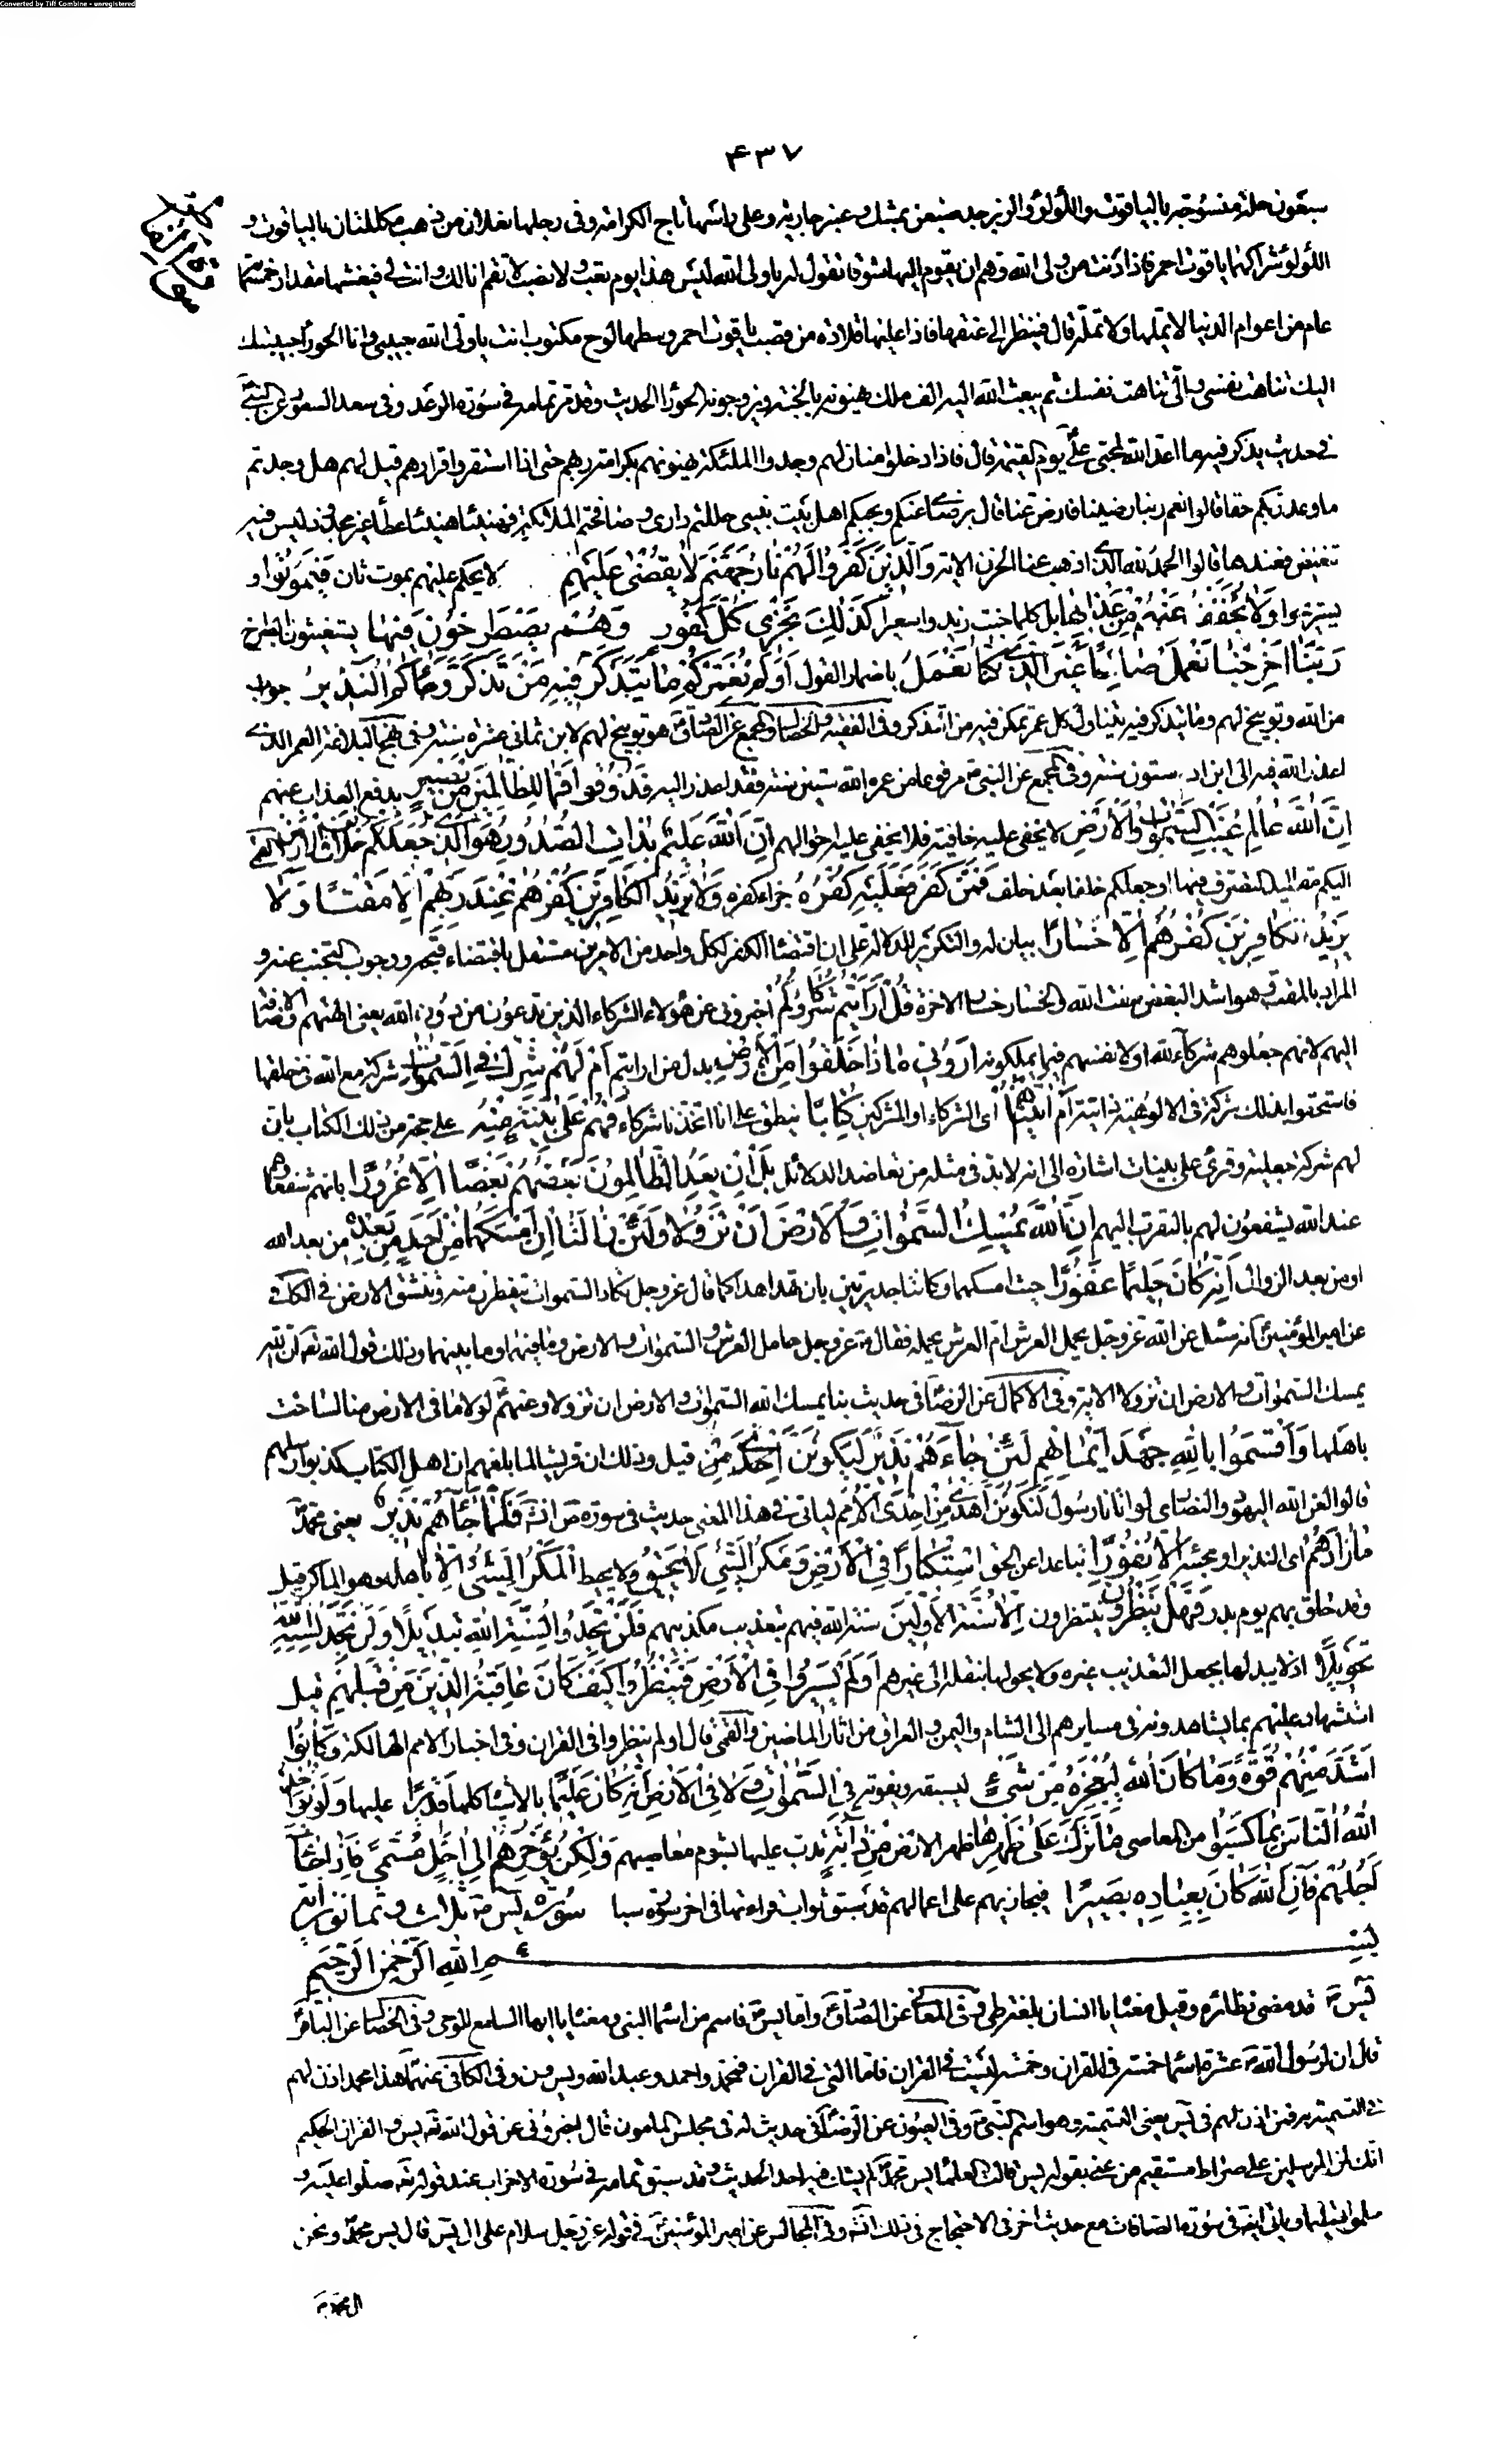 Converted by Tiff Combine - unregistered
۴۳۷
سبعون حلة منسوجة بالياقوت واللؤلؤ والزبرجد صبغن بمسك وعنبر وعلى راسها تاج الكرامة وفى رجلها نعلان من ذهب مكللتان بالياقوت و
اللؤلؤ شراكهما ياقوت احمر فاذا دنت من ولى الله وهم ان يقوم اليها شوقا تقول له يا ولى الله ليس هذا يوم تعب ولا نصب لا تقم انا لك وانت لى فيعتنقها مقدار خمسمائة
عام من اعوام الدنيا لا يملها ولا تمله قال فينظر الى عنقها فاذا عليها قلادة من قصب ياقوت احمر وسطها لوح مكتوب انت يا ولى الله حبيبى وانا الحوراء حبيبتك
اليك تناهت نفسى والى تناهت نفسك ثم يبعث الله اليه الف ملك يهنونه بالجنة ويزوجونه الحوراء الحديث وقد مر تمامه فى سورة الرعد وفى سعد السعود عن النبى
فى حديث يذكر فيه ما اعد الله لمحبى على يوم القيمة قال فاذا دخلوا منازلهم وجدوا الملئكة يهنونهم بكرامة ربهم حتى اذا استقروا قرارهم قيل لهم هل وجدتم
ما وعد ربكم حقا قالوا نعم ربنا رضينا فارض عنا قال برضاى عنكم وبحبكم اهل بيت نبيى حللتم دارى وصافحتم الملائكة فهنيئا هنيئا عطاء غير مجذوذ ليس فيه
تنغيص فعندها قالوا الحمد لله الذى اذهب عنا الحزن الاية وَالَّذِينَ كَفَرُوا لَهُمْ نَارُ جَهَنَّمَ لَا يُقْضَى عَلَيْهِمْ لا يحكم عليهم بموت ثان فَيَمُوتُوا و
يستريحوا وَلَا يُخَفَّفُ عَنْهُمْ مِنْ عَذَابِهَا بل كلما خبت زيدوا سعيرا كَذَلِكَ نَجْزِي كُلَّ كَفُورٍ وَهُمْ يَصْطَرِخُونَ فِيهَا يستغيثون بصراخ
رَبَّنَا أَخْرِجْنَا نَعْمَلْ صَالِحًا غَيْرَ الَّذِي كُنَّا نَعْمَلُ باضمار القول أَوَلَمْ نُعَمِّرْكُمْ مَا يَتَذَكَّرُ فِيهِ مَنْ تَذَكَّرَ وَجَاءَكُمُ النَّذِيرُ جواب
من الله وتوبيخ لهم وما يتذكر فيه يتناول كل عمر تمكن فيه من التذكر وفى الفقيه والخصال والمجمع عن الصادق هو توبيخ لهم لابن ثمانى عشرة سنة وفى نهج البلاغة العمر الذى
اعذر الله فيه الى ابن ادم ستون سنة وفى المجمع عن النبى مرفوعا من عمره الله ستين سنة فقد اعذر اليه فَذُوقُوا فَمَا لِلظَّالِمِينَ مِنْ نَصِيرٍ يدفع العذاب عنهم
إِنَّ اللَّهَ عَالِمُ غَيْبِ السَّمَوَاتِ وَالْأَرْضِ لا يخفى عليه خافية فلا يخفى عليه احوالهم إِنَّهُ عَلِيمٌ بِذَاتِ الصُّدُورِ هُوَ الَّذِي جَعَلَكُمْ خَلَائِفَ فِي الْأَرْضِ القى
اليكم مقاليد التصرف فيها او جعلكم خلفا بعد خلف فَمَنْ كَفَرَ فَعَلَيْهِ كُفْرُهُ جزاء كفره وَلَا يَزِيدُ الْكَافِرِينَ كُفْرُهُمْ عِنْدَ رَبِّهِمْ إِلَّا مَقْتًا وَلَا
يَزِيدُ الْكَافِرِينَ كُفْرُهُمْ إِلَّا خَسَارًا بيان له والتكرير للدلالة على ان اقتضاء الكفر لكل واحد من الامرين مستقل باقتضاء قبحه ووجوب التجنب عنه و
المراد بالمقت وهو اشد البغض مقت الله والخسار خسار الاخرة قُلْ أَرَأَيْتُمْ شُرَكَاءَكُمُ اخبرونى عن هؤلاء الشركاء الذين تدعون من دون الله يعنى الهتهم والاضافة
اليهم لانهم جعلوهم شركاء لله او لانفسهم فيما يملكونه أَرُونِي مَاذَا خَلَقُوا مِنَ الْأَرْضِ بدل من ارايتم أَمْ لَهُمْ شِرْكٌ فِي السَّمَوَاتِ شركة مع الله فى خلقها
فاستحقوا بذلك شركة فى الالوهية ذاتية أَمْ آتَيْنَاهُمْ اى الشركاء او المشركين كِتَابًا ينطق على انا اتخذنا شركاء فَهُمْ عَلَى بَيِّنَةٍ مِنْهُ على حجة من ذلك الكتاب بان
لهم شركة جعلية وقرئ على بينات اشارة الى انه لا بد فى مثله من تعاضد الدلائل بَلْ إِنْ يَعِدُ الظَّالِمُونَ بَعْضُهُمْ بَعْضًا إِلَّا غُرُورًا بانهم شفعاؤهم
عند الله يشفعون لهم بالتقرب اليهم إِنَّ اللَّهَ يُمْسِكُ السَّمَوَاتِ وَالْأَرْضَ أَنْ تَزُولَا وَلَئِنْ زَالَتَا إِنْ أَمْسَكَهُمَا مِنْ أَحَدٍ مِنْ بَعْدِهِ من بعد الله
او من بعد الزوال إِنَّهُ كَانَ حَلِيمًا غَفُورًا حيث امسكهما وكانتا جديرتين بان تهدا هدا كما قال عز وجل تكاد السموات يتفطرن منه وتنشق الارض فى الكافى
عن امير المؤمنين انه سئل عن الله عز وجل يحمل العرش ام العرش يحمله فقال الله عز وجل حامل العرش والسموات والارض وما فيهما وما بينهما وذلك قول الله تعالى ان الله
يمسك السموات والارض ان تزولا الاية وفى الاكمال عن الرضا فى حديث بنا يمسك الله السموات والارض ان تزولا وعنهم لولا ما فى الارض منا لساخت
باهلها وَأَقْسَمُوا بِاللَّهِ جَهْدَ أَيْمَانِهِمْ لَئِنْ جَاءَهُمْ نَذِيرٌ لَيَكُونُنَّ أَهْدَى مِنْ قيل وذلك ان قريشا لما بلغهم ان اهل الكتاب كذبوا رسلهم
قالوا لعن الله اليهود والنصارى لو اتانا رسول لنكونن أَهْدَى مِنْ إِحْدَى الْأُمَمِ لياتى فى هذا المعنى حديث فى سورة ص انشاء فَلَمَّا جَاءَهُمْ نَذِيرٌ يعنى محمد
مَا زَادَهُمْ اى النذير او مجيئه إِلَّا نُفُورًا تباعدا عن الحق اسْتِكْبَارًا فِي الْأَرْضِ وَمَكْرَ السَّيِّئِ وَلَا يَحِيقُ ولا يحيط الْمَكْرُ السَّيِّئُ إِلَّا بِأَهْلِهِ وهو الماكر قيل
وقد حاق بهم يوم بدر فَهَلْ يَنْظُرُونَ ينتظرون إِلَّا سُنَّةَ الْأَوَّلِينَ سنة الله فيهم بتعذيب مكذبيهم فَلَنْ تَجِدَ لِسُنَّةِ اللَّهِ تَبْدِيلًا وَلَنْ تَجِدَ لِسُنَّةِ اللَّهِ
تَحْوِيلًا اذ لا يبدلها بجعل التعذيب غيره ولا يحولها بنقله الى غيرهم أَوَلَمْ يَسِيرُوا فِي الْأَرْضِ فَيَنْظُرُوا كَيْفَ كَانَ عَاقِبَةُ الَّذِينَ مِنْ قَبْلِهِمْ قيل
استشهاد عليهم بما يشاهدونه فى مسايرهم الى الشام واليمن والعراق من اثار الماضين والقمى قال اولم ينظروا فى القران وفى اخبار الامم الهالكة وَكَانُوا
أَشَدَّ مِنْهُمْ قُوَّةً وَمَا كَانَ اللَّهُ لِيُعْجِزَهُ مِنْ شَيْءٍ ليسبقه ويفوته فِي السَّمَوَاتِ وَلَا فِي الْأَرْضِ إِنَّهُ كَانَ عَلِيمًا بالاشياء كلها قَدِيرًا عليها وَلَوْ يُؤَاخِذُ
اللَّهُ النَّاسَ بِمَا كَسَبُوا من المعاصى مَا تَرَكَ عَلَى ظَهْرِهَا ظهر الارض مِنْ دَابَّةٍ تدب عليها بشوم معاصيهم وَلَكِنْ يُؤَخِّرُهُمْ إِلَى أَجَلٍ مُسَمًّى فَإِذَا جَاءَ
أَجَلُهُمْ فَإِنَّ اللَّهَ كَانَ بِعِبَادِهِ بَصِيرًا فيجازيهم على اعمالهم قد سبق ثواب قراءتها فى اخر سورة سبا سورة يس ثلاث وثمانون اية
بسم الله الرحمن الرحيم
يس قد مضى نظائره وقيل معناه يا انسان بلغة طى وفى المعانى عن الصادق واما يس فاسم من اسماء النبى ومعناه يا ايها السامع للوحى وفى الخصال عن الباقر
قال ان لرسول الله عشرة اسماء خمسة فى القران وخمسة ليست فى القران فاما التى فى القران فمحمد واحمد وعبد الله ويس ون وفى الكافى عنه هذا محمد اذن لهم
فى التسمية به فمن اذن لهم فى يس يعنى التسمية وهو اسم النبى وفى العيون عن الرضا فى حديث له فى مجلس المامون قال اخبرونى عن قول الله تعالى يس والقران الحكيم
انك لمن المرسلين على صراط مستقيم من عنى بقوله يس قالت العلماء يس محمد لم يشك فيه احد الحديث وقد سبق تمامه فى سورة الاحزاب عند قوله تعالى صلوا عليه و
سلموا تسليما وياتى ايضا فى سورة الصافات مع حديث اخر فى الاحتجاج فى ذلك انشاء وفى المجالس عن امير المؤمنين فى قوله عز وجل سلام على ال يس قال يس محمد ونحن
ال محمد